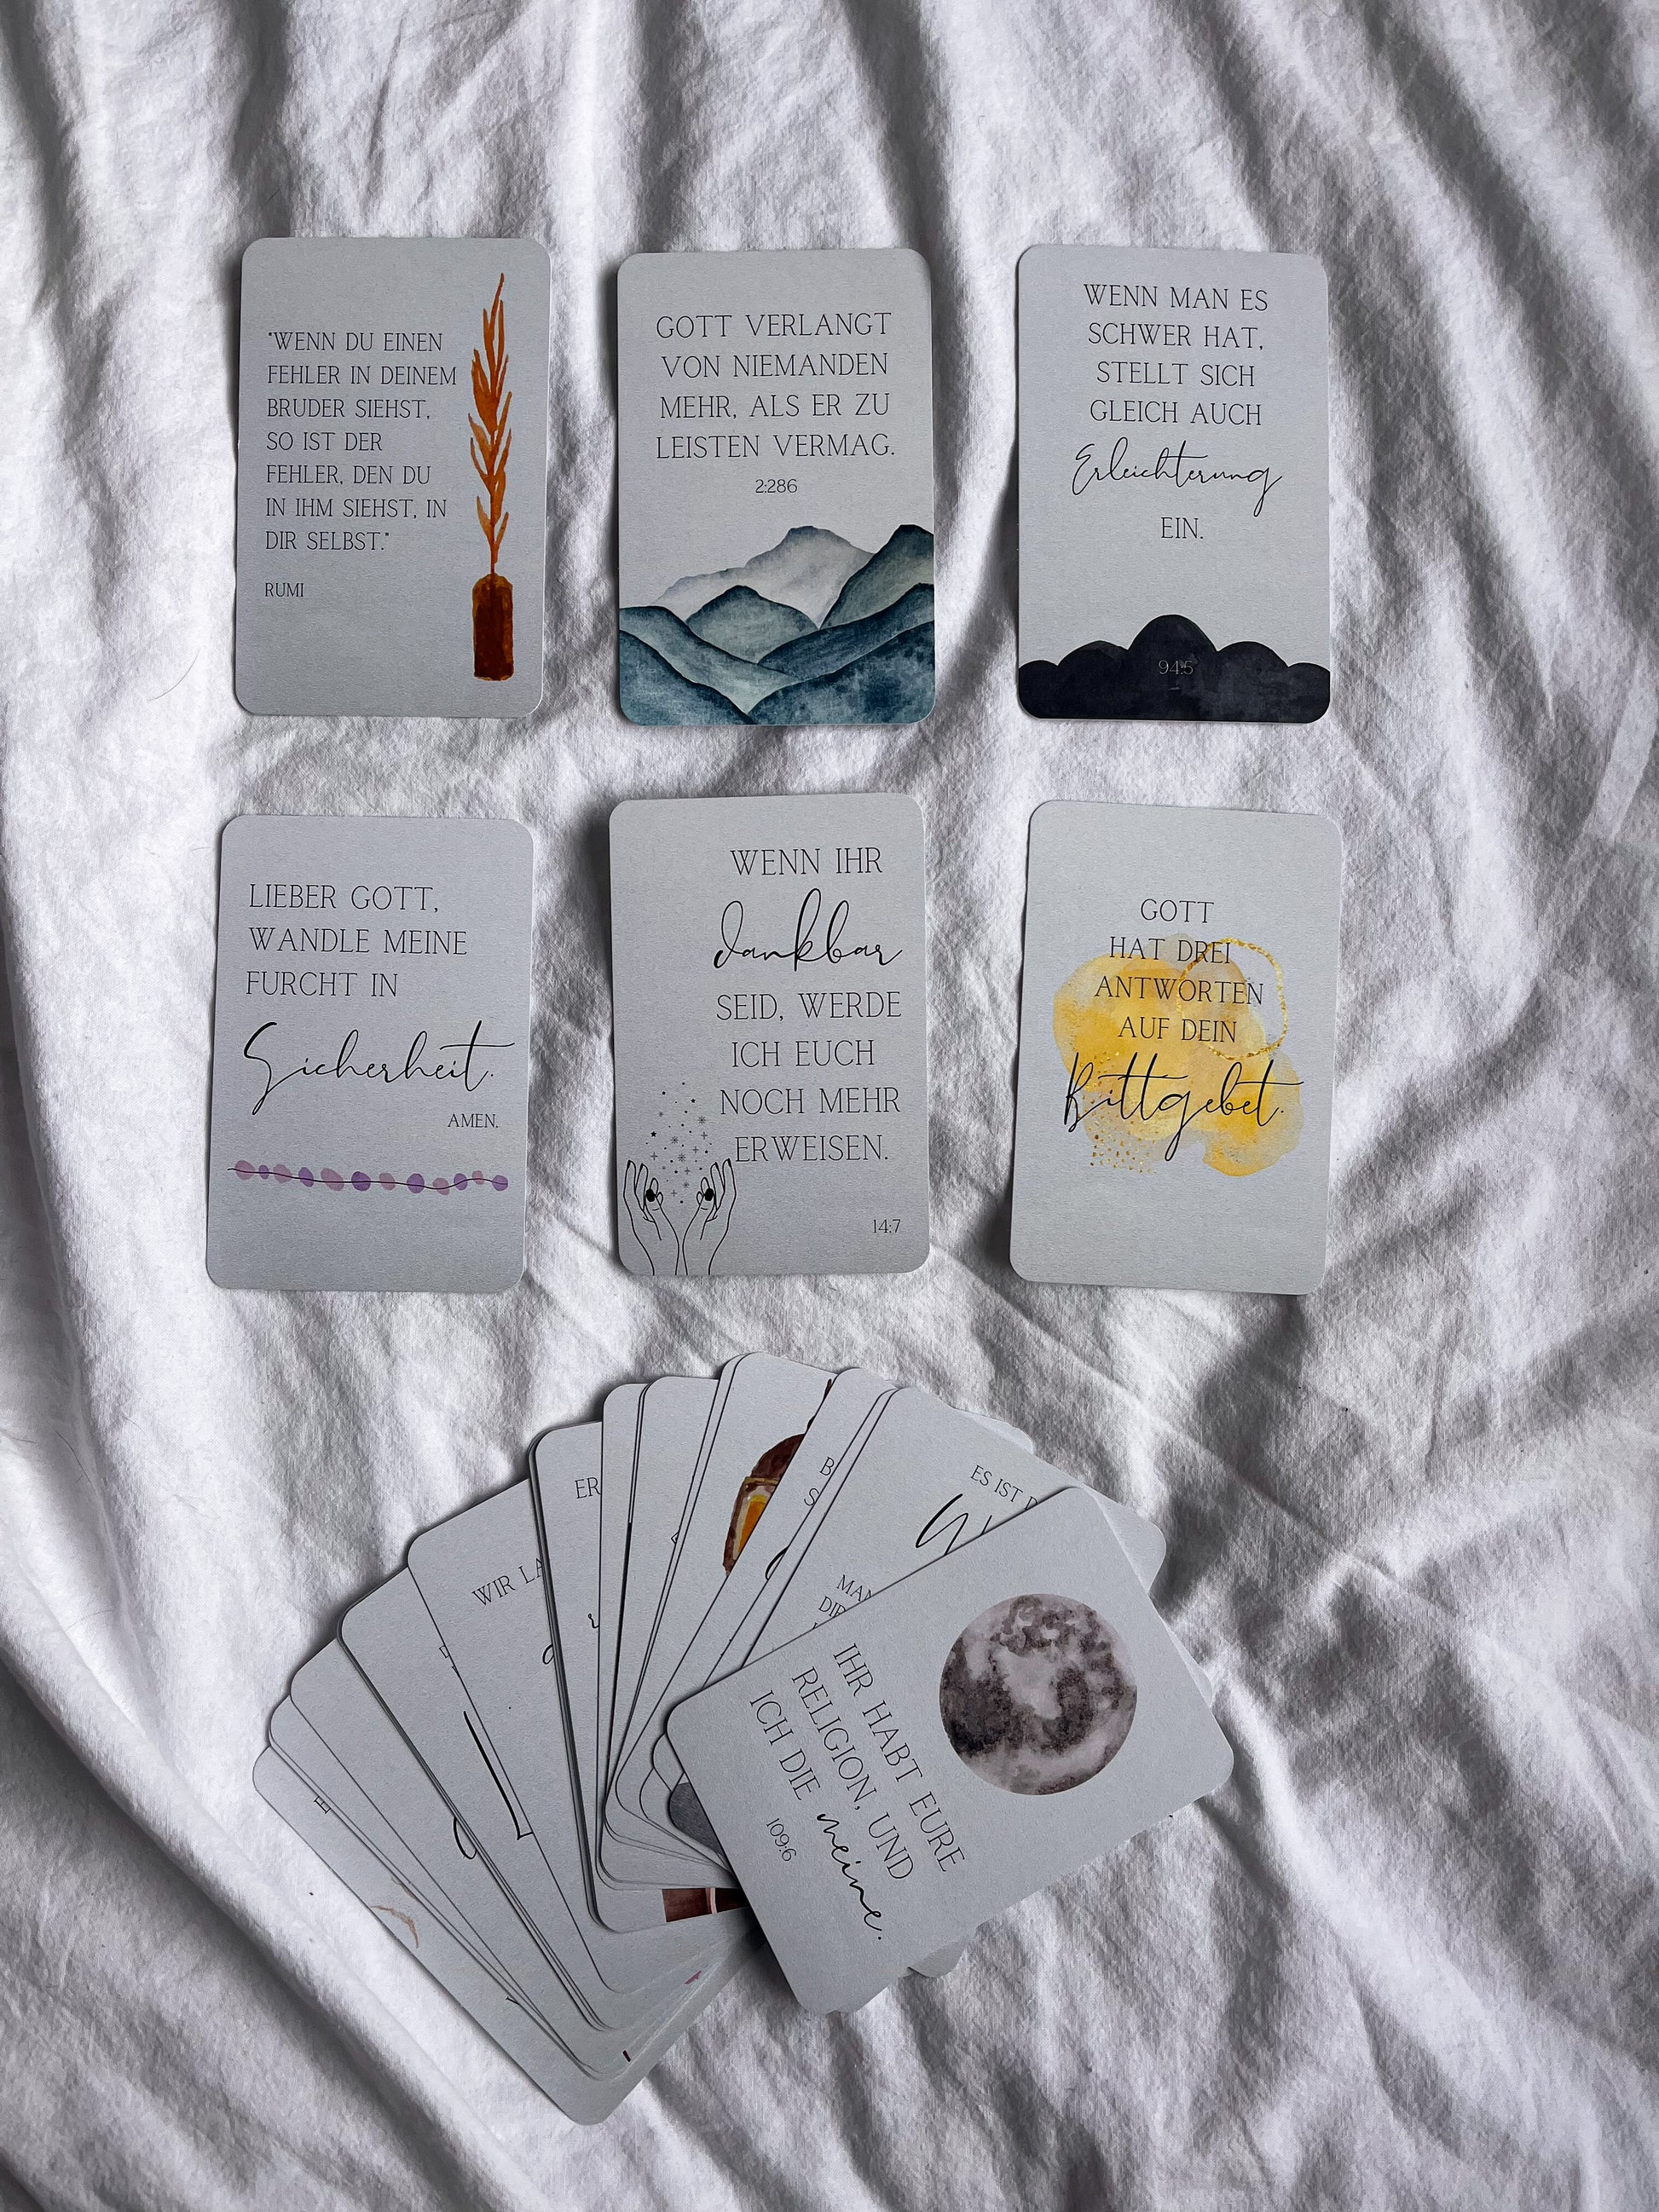 "WENN DU EINEN
FEHLER IN DEINEM
BRUDER SIEHST,
SO IST DER
FEHLER, DEN DU
IN IHM SIEHST, IN
DIR SELBST."
RUMI
GOTT VERLANGT
VON NIEMANDEN
MEHR, ALS ER ZU
LEISTEN VERMAG.
2:286
WENN MAN ES
SCHWER HAT,
STELLT SICH
GLEICH AUCH
Erleichterung
EIN.
94:5
LIEBER GOTT,
WANDLE MEINE
FURCHT IN
Sicherheit.
AMEN.
WENN IHR
dankbar
SEID, WERDE
ICH EUCH
NOCH MEHR
ERWEISEN.
14:7
GOTT
HAT DREI
ANTWORTEN
AUF DEIN
Bittgebet.
ER
WIR LA
B
S
ES IST D
MAN
DIR
IHR HABT EURE
RELIGION, UND
ICH DIE meine.
109:6